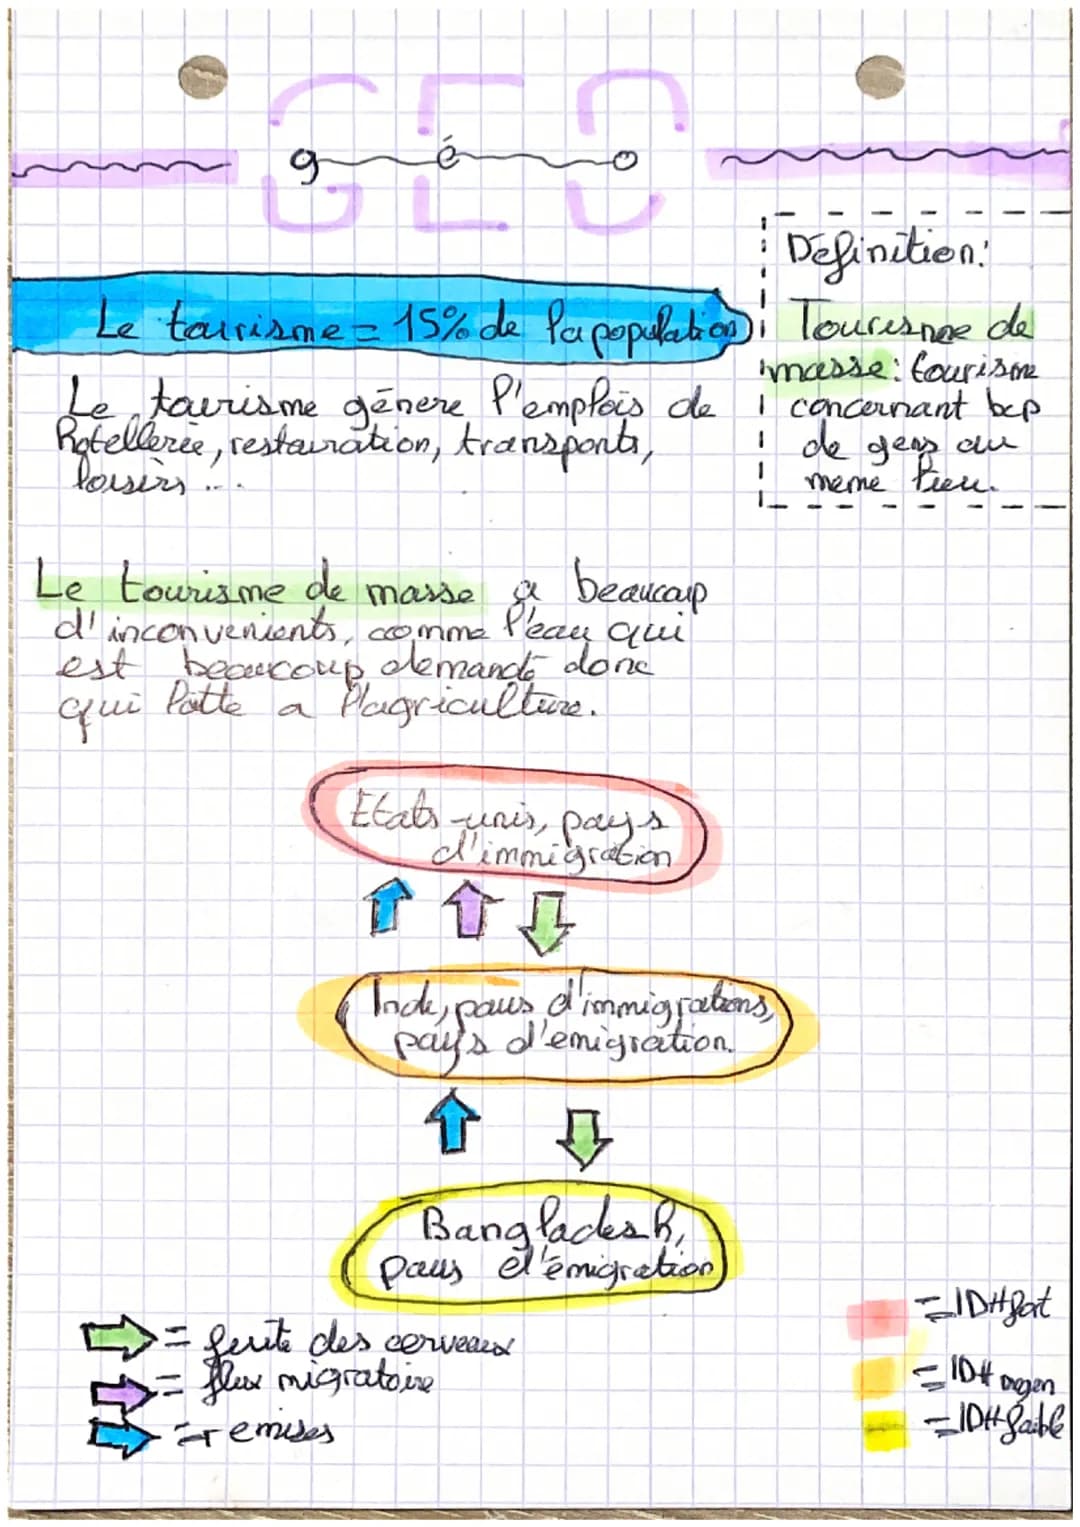 GEO
géo
Définition:
Tourisme de
masse: tourisme
concernant bcp
de gens au
meme lieu.
Le tourisme = 15% de la population
Le tourisme génere l'emplois de
hotellerie, restauration, transports,
loisirs ...
Le tourisme de masse a beaucoup
d'inconvenients, comme l'eau qui
est beaucoup demandé donc
qui lutte a l'agriculture.
Etats-unis, pays
d'immigration
Inde, pays d'immigrations,
pays d'emigration.
Bangladesh,
pays d'émigration
= fuite des cerveaux
= flux migratoire
= remises
= IDH fort
= IDH moyen
= IDH faible